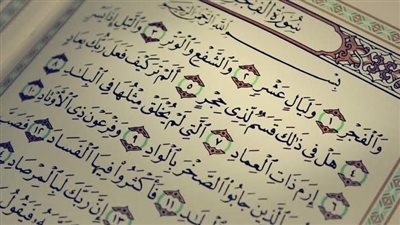 سُورَةُ الفَجْرِ
بِسْمِ اللَّهِ الرَّحْمَٰنِ الرَّحِيمِ
وَالْفَجْرِ ١ وَلَيَالٍ عَشْرٍ ٢ وَالشَّفْعِ وَالْوَتْرِ ٣ وَاللَّيْلِ إِذَا يَسْرِ
٤ هَلْ فِي ذَٰلِكَ قَسَمٌ لِّذِي حِجْرٍ ٥ أَلَمْ تَرَ كَيْفَ فَعَلَ رَبُّكَ بِعَادٍ
٦ إِرَمَ ذَاتِ الْعِمَادِ ٧ الَّتِي لَمْ يُخْلَقْ مِثْلُهَا فِي الْبِلَادِ ٨
الَّذِينَ جَابُوا الصَّخْرَ بِالْوَادِ ٩ وَفِرْعَوْنَ ذِي الْأَوْتَادِ ١٠
ـلَادِ ١١ فَأَكْثَرُوا فِيهَا الْفَسَادَ ١٢ فَصَبَّ
١٣ إِنَّ رَبَّكَ لَبِالْمِرْصَادِ
فَيَقُولُ